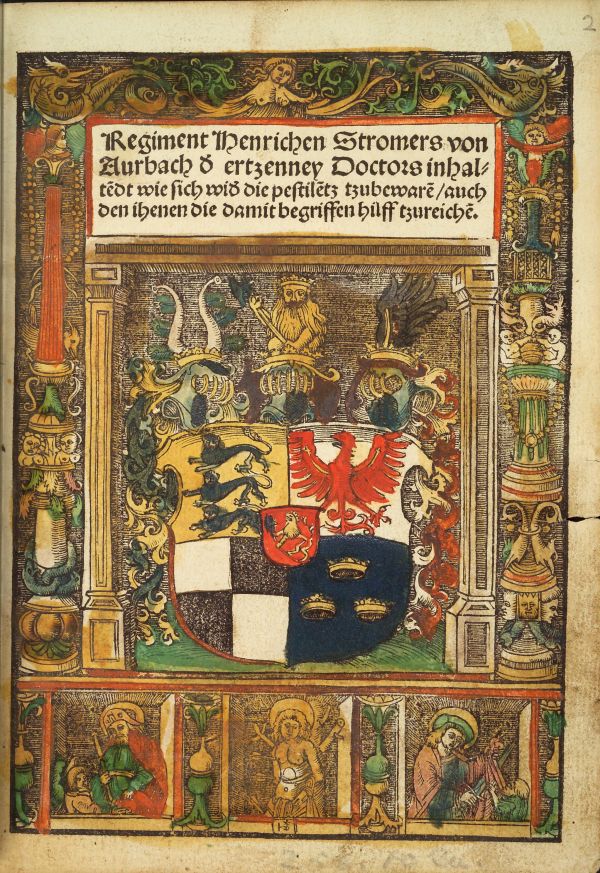 2
Regiment Henrichen Stromers von
Aurbach đ ertzenney Doctors inhal⸗
tēdt wie sich wiđ die pestilētz tzubewarē/auch
den ihenen die damit begriffen hilff tzureichē.